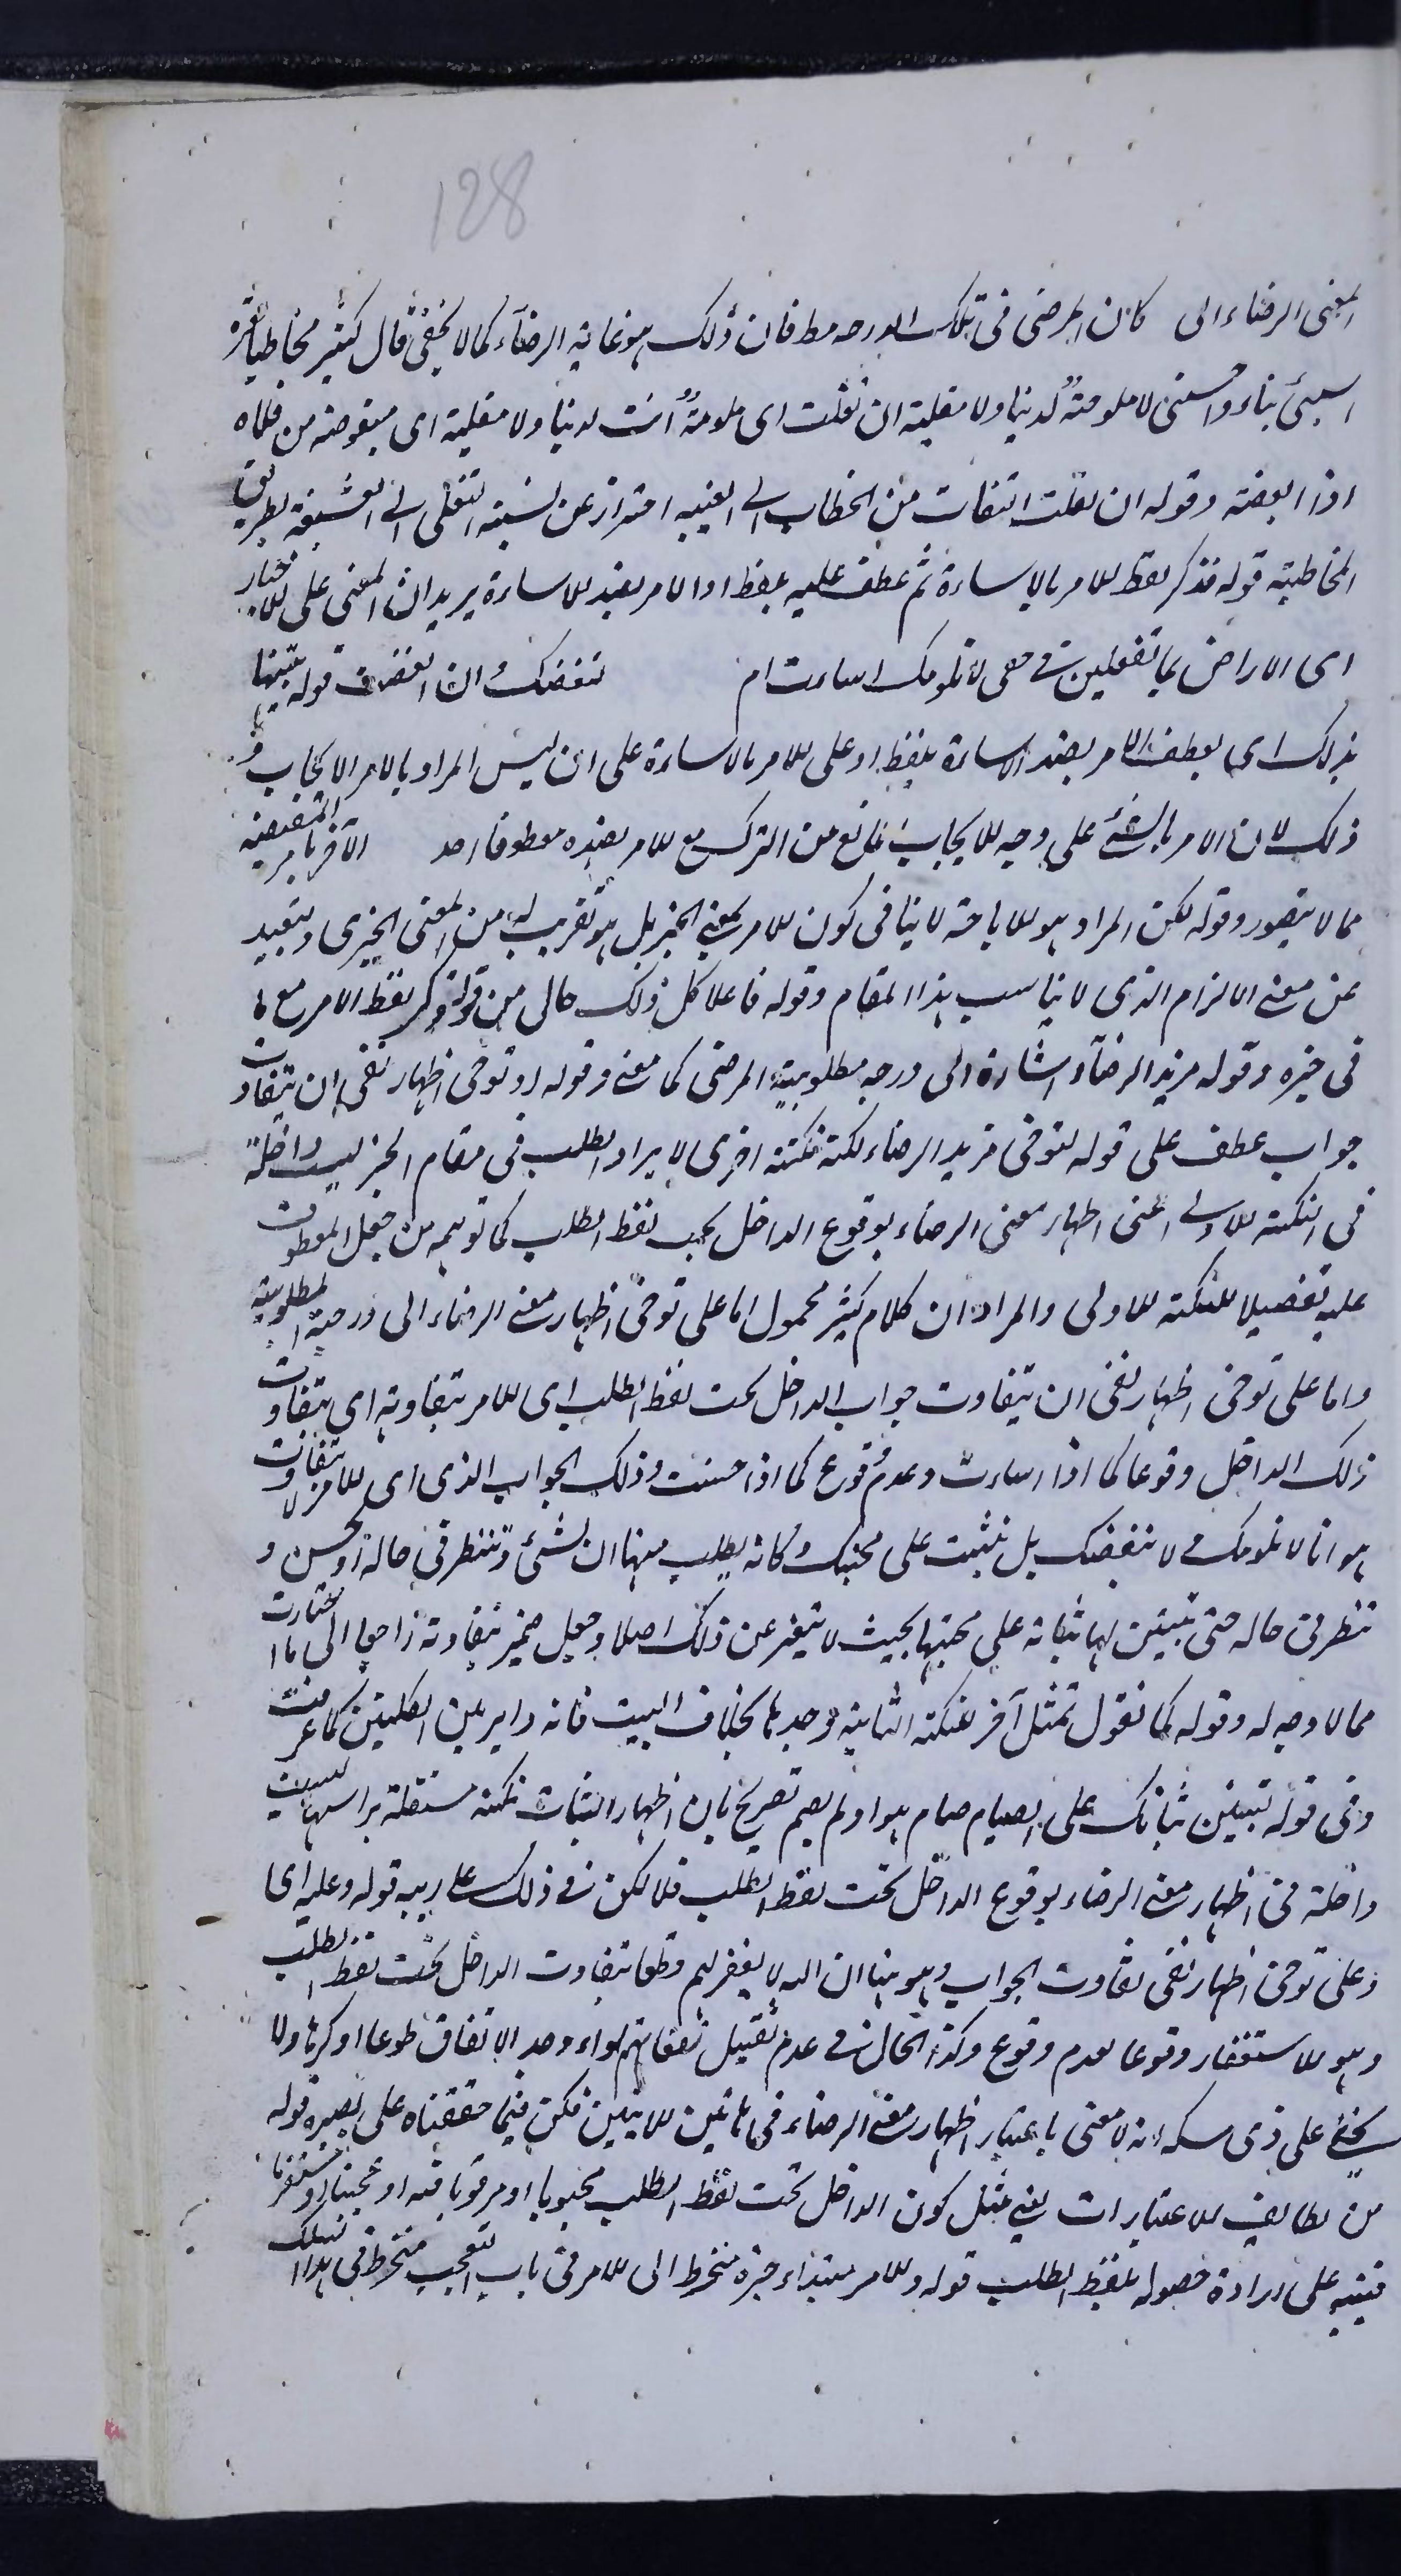 128
المعنى الرضاء الى كان المرضى فى تلك الدرجه مط فان ذلك هو غاية الرضآء كما لا يخفى قال كثير مخاطبا لعزه
اسيئى بنا او احسنى لا ملومةٌ لدينا ولا مقلية ان تقلت اى ملومةٌ انت لدينا ولا مقلية اى مبغوضة من قلاه
اذا ابغضه وقوله ان تقلت التفات من الخطاب الى الغيبه احتراز عن نسبة التقلى الى العشيقة بطريق
المخاطبة قوله فذكر لفظ الامر بالاساءة ثم عطف عليه بلفظ او الامر بضد الاساءة يريد ان المعنى على الاخبار
اى الا راض بما تفعلين فى حقى لا نلومك اسات ام نبغضك ان ابغضت قوله تنبيها
بذلك اى بعطف الامر بضد الاساءة بلفظ او على الامر بالاساءة على ان ليس المراد بالامر الايجاب و
ذلك لان الامر بالشئ على وجه الايجاب المانع من الترك مع الامر بضده معطوفا احد الآخر بامر المقتضية
مما لا يتصور وقوله لكن المراد هو الاباحة لا ينافى كون الامر بمعنى الخبر بل هو تقريب له من المعنى الخبرى وتبعيد
عن معنى الالزام الذى لا يناسب هذا المقام وقوله فاعلا كل ذلك حال من قوله وذكر لفظ الامر مع ما
فى خبره وقوله مزيد الرضآء اشارة الى درجه مطلوبية المرضى كما معنى وقوله او توخى اظهار نفى ان يتفاوت
جواب عطف على قوله لتوخى مزيد الرضاء لكنه نكتة اخرى لايراد الطلب فى مقام الخبر ليست داخلة
فى النكتة الاولى اعنى اظهار معنى الرضاء بوقوع الداخل تحت لفظ الطلب كما توهمه من جعل المعطوف
عليه تفصيلا للنكتة الاولى والمراد ان كلام كثير محمول اما على توخى اظهار معنى الرضاء الى درجة المطلوبية
واما على توخى اظهار نفى ان يتفاوت جواب الداخل تحت لفظ الطلب اى الامر بتفاوته اى بتفاوت
ذلك الداخل وقوعا كما اذا اساءت وعدم وقوع كما اذا احسنت وذلك الجواب الذى اى الامر لا يتفاوت
هو انا لا نلومك ولا نبغضك بل نثبت على محبتك وكانه يطلب منها ان تسئ وتنظر فى حاله او تحسن و
تنظر فى حاله حتى يتبين لها ثباته على محبتها بحيث لا يتغير عن ذلك اصلا وجعل ضمير بتفاوته راجعا الى ما اختارت
مما لا وجه له وقوله كما نقول تمثل آخر للنكتة الثانية وحدها بخلاف البيت فانه داير بين الكلمتين كما عرفت
وفى قوله تبيين ثباتك على الصيام صام هو او لم يصم تصريح بان اظهار الثبات نكتة مستقلة براسها ليست
داخلة فى اظهار معنى الرضاء بوقوع الداخل تحت لفظ الطلب فلا تكن فى ذلك على ريبه قوله وعليه اى
وعلى توخى اظهار نفى تفاوت الجواب وهو هنا ان الله لا يغفر لهم وقلما بتفاوت الداخل تحت لفظ الطلب
وهو الاستغفار وقوعا وعدم وقوع وكذا الحال فى عدم تقبيل نفقاتهم سواء وجد الانفاق طوعا او كرها ولا
يخفى على ذى مسكه انه لا معنى باعتبار اظهار معنى الرضاء فى هاتين الايتين فكن فيما حققناه على بصيره قوله
من لطايف الاعتبارات يعنى مثل كون الداخل تحت لفظ الطلب محبوبا او مرغوبا فيه او مجتنبا او مستقرا
تنبيه على ارادة حصوله بلفظ الطلب قوله والامر مبتداء خبره منخرط اى الامر فى باب التعجب منخرط فى هذا السلك